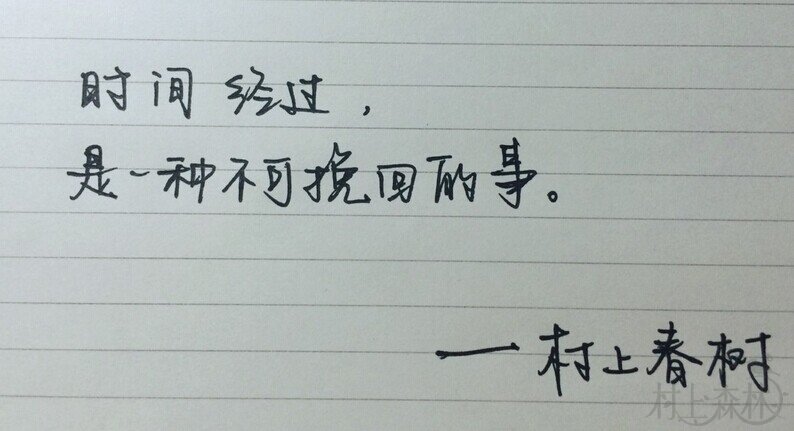 时间经过，
是一种不可挽回的事。
——村上春树
村上森林